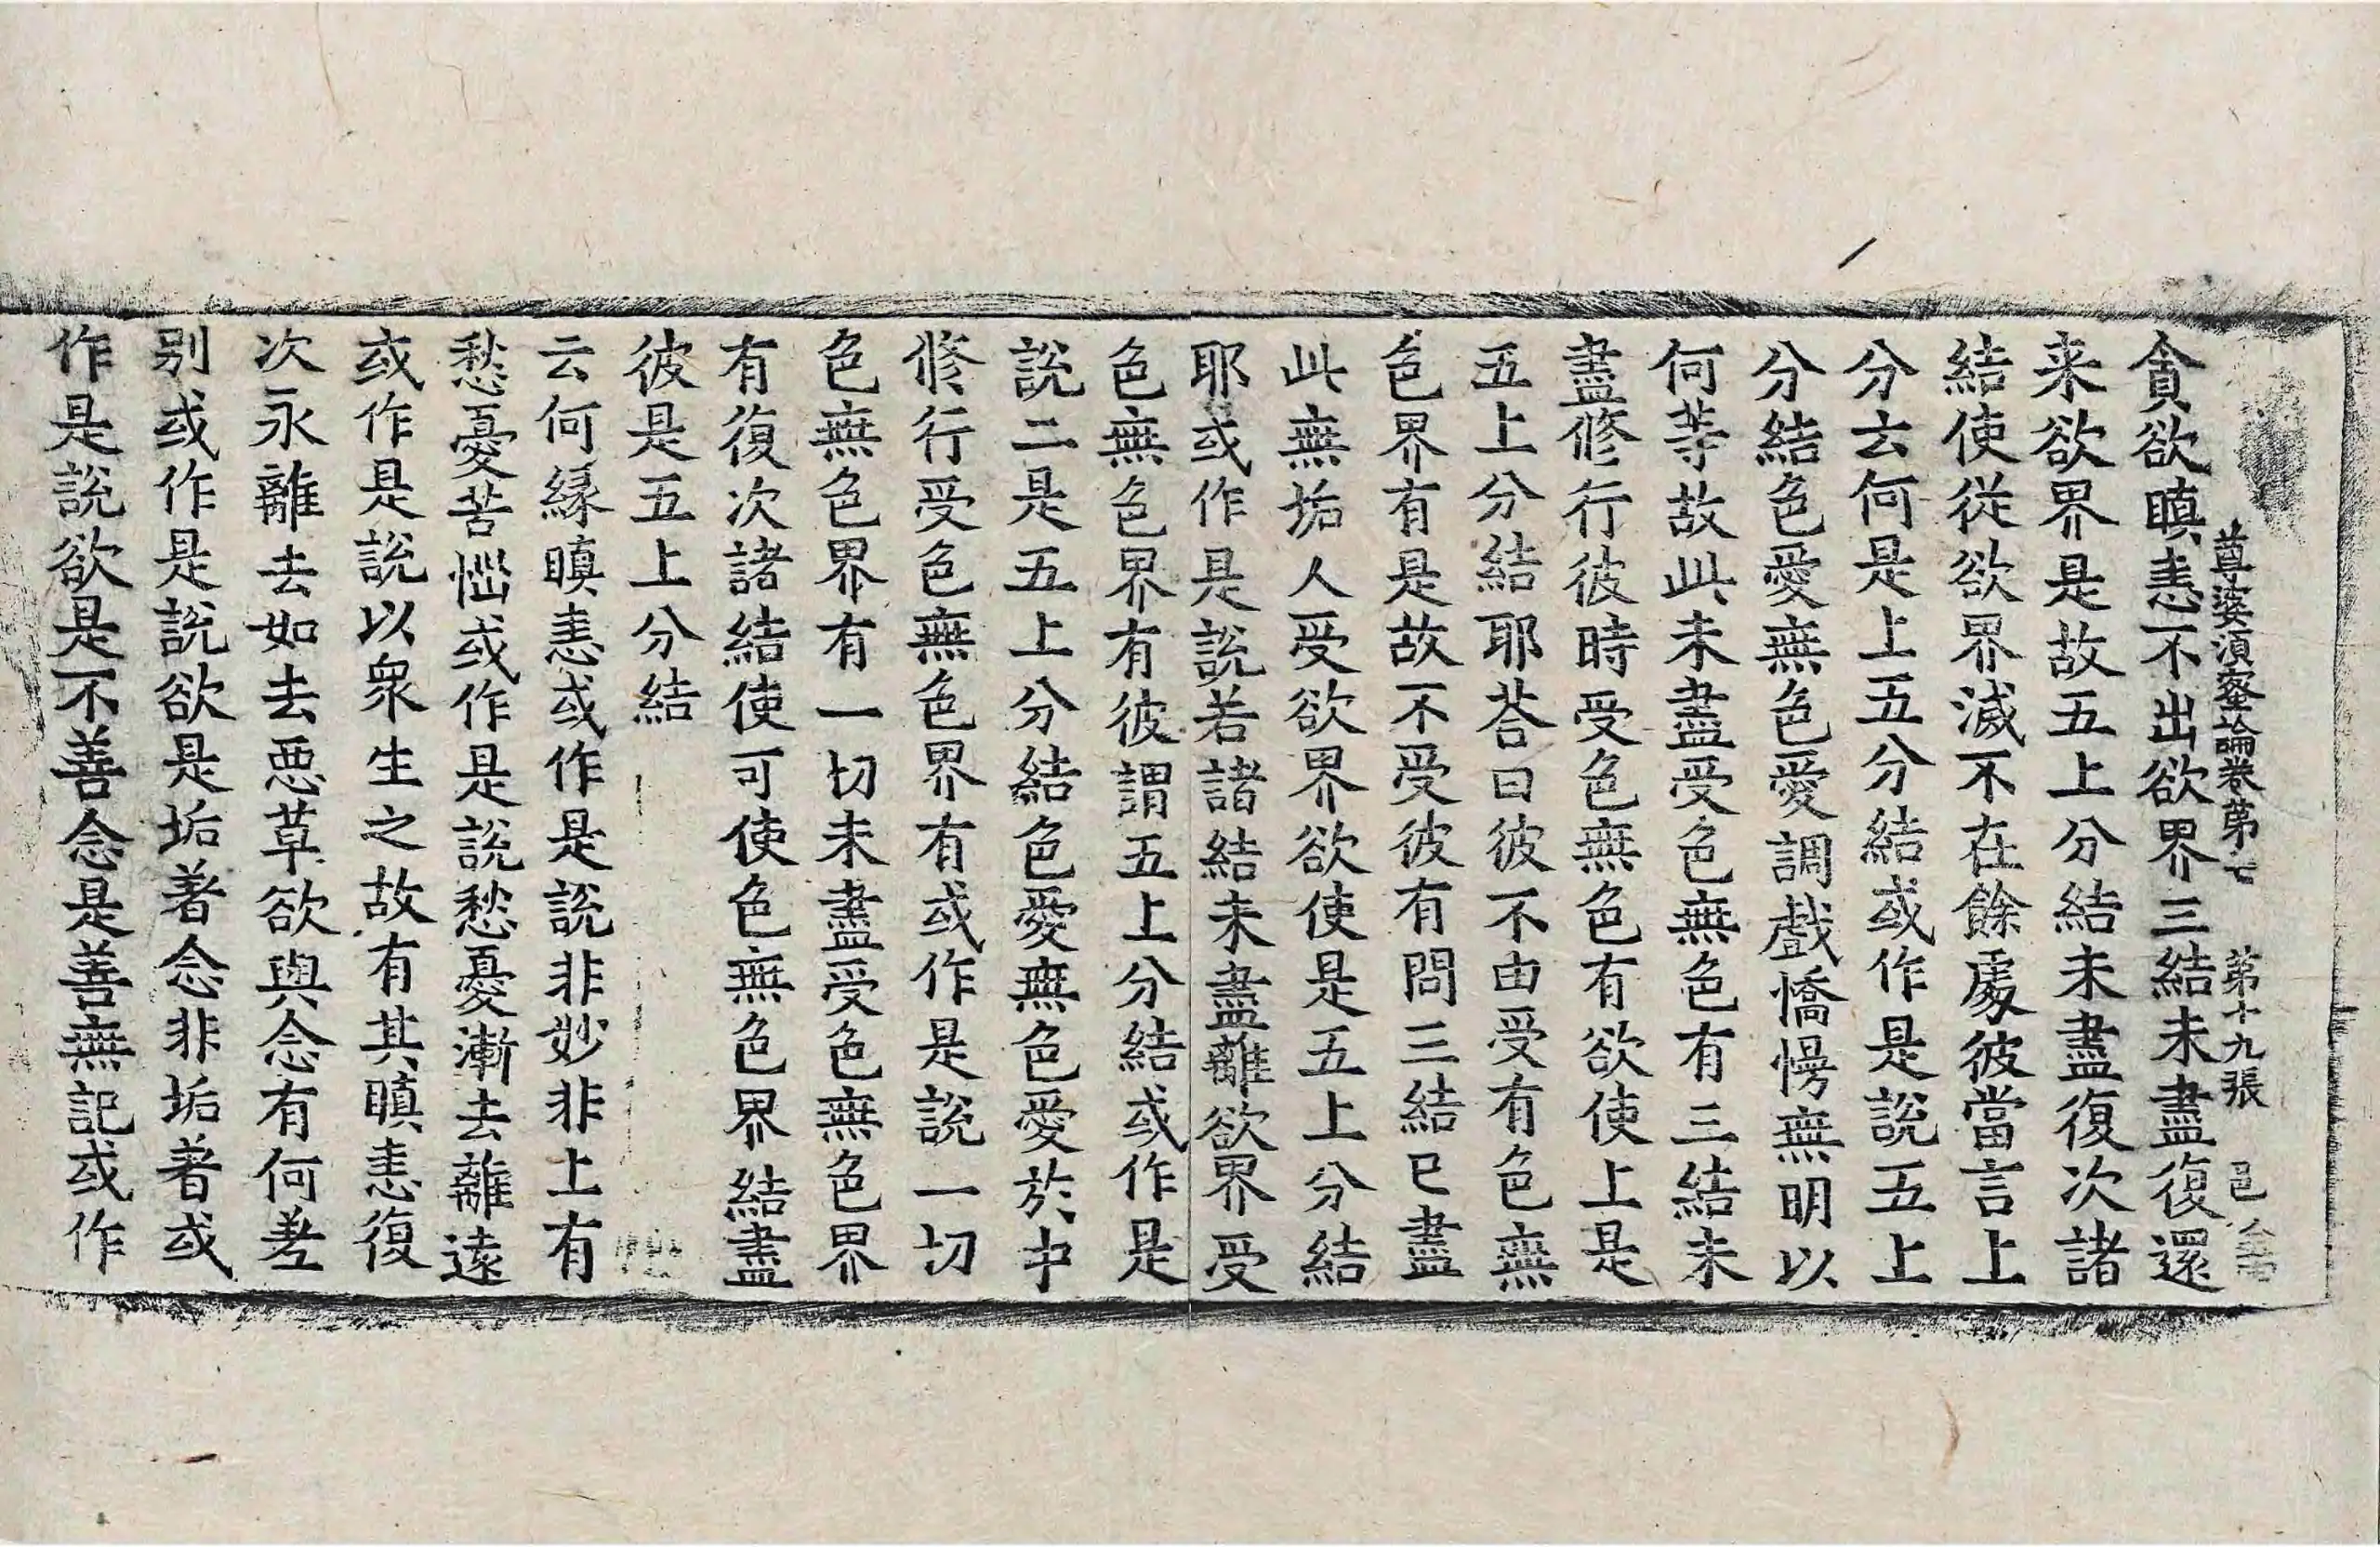 尊婆湏蜜論卷第七 第十九張 邑
貪欲瞋恚不出欲界三結未盡復還
来欲界是故五上分結未盡復次諸
結使從欲界滅不在餘處彼當言上
分云何是上五分結或作是說五上
分結色愛無色愛調戲憍慢無明以
何等故此未盡受色無色有三結未
盡修行彼時受色無色有欲使上是
五上分結耶荅曰彼不由受有色無
色界有是故不受彼有問三結已盡
此無垢人受欲界欲使是五上分結
耶或作是說若諸結未盡離欲界受
色無色界有彼謂五上分結或作是
說二是五上分結色愛無色愛於中
修行受色無色界有或作是說一切
色無色界有一切未盡受色無色界
有復次諸結使可使色無色界結盡
彼是五上分結
云何緣瞋恚或作是說非妙非上有
愁憂苦惱或作是說愁憂漸去離遠
或作是說以衆生之故有其瞋恚復
次永離去如去惡草欲與念有何差
别或作是說欲是垢著念非垢著或
作是說欲是不善念是善無記或作